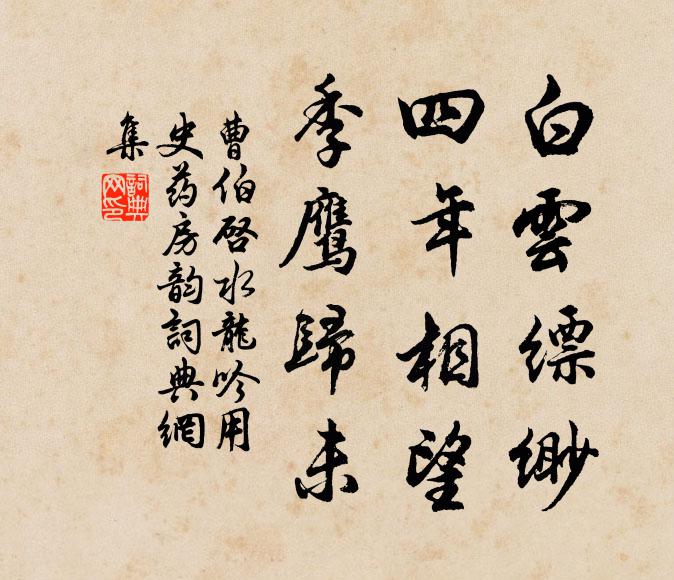 白雲縹緲
四年相望
季鷹歸未
曹伯啓水龍吟用
史药房韵詞典網
集
詞典网印